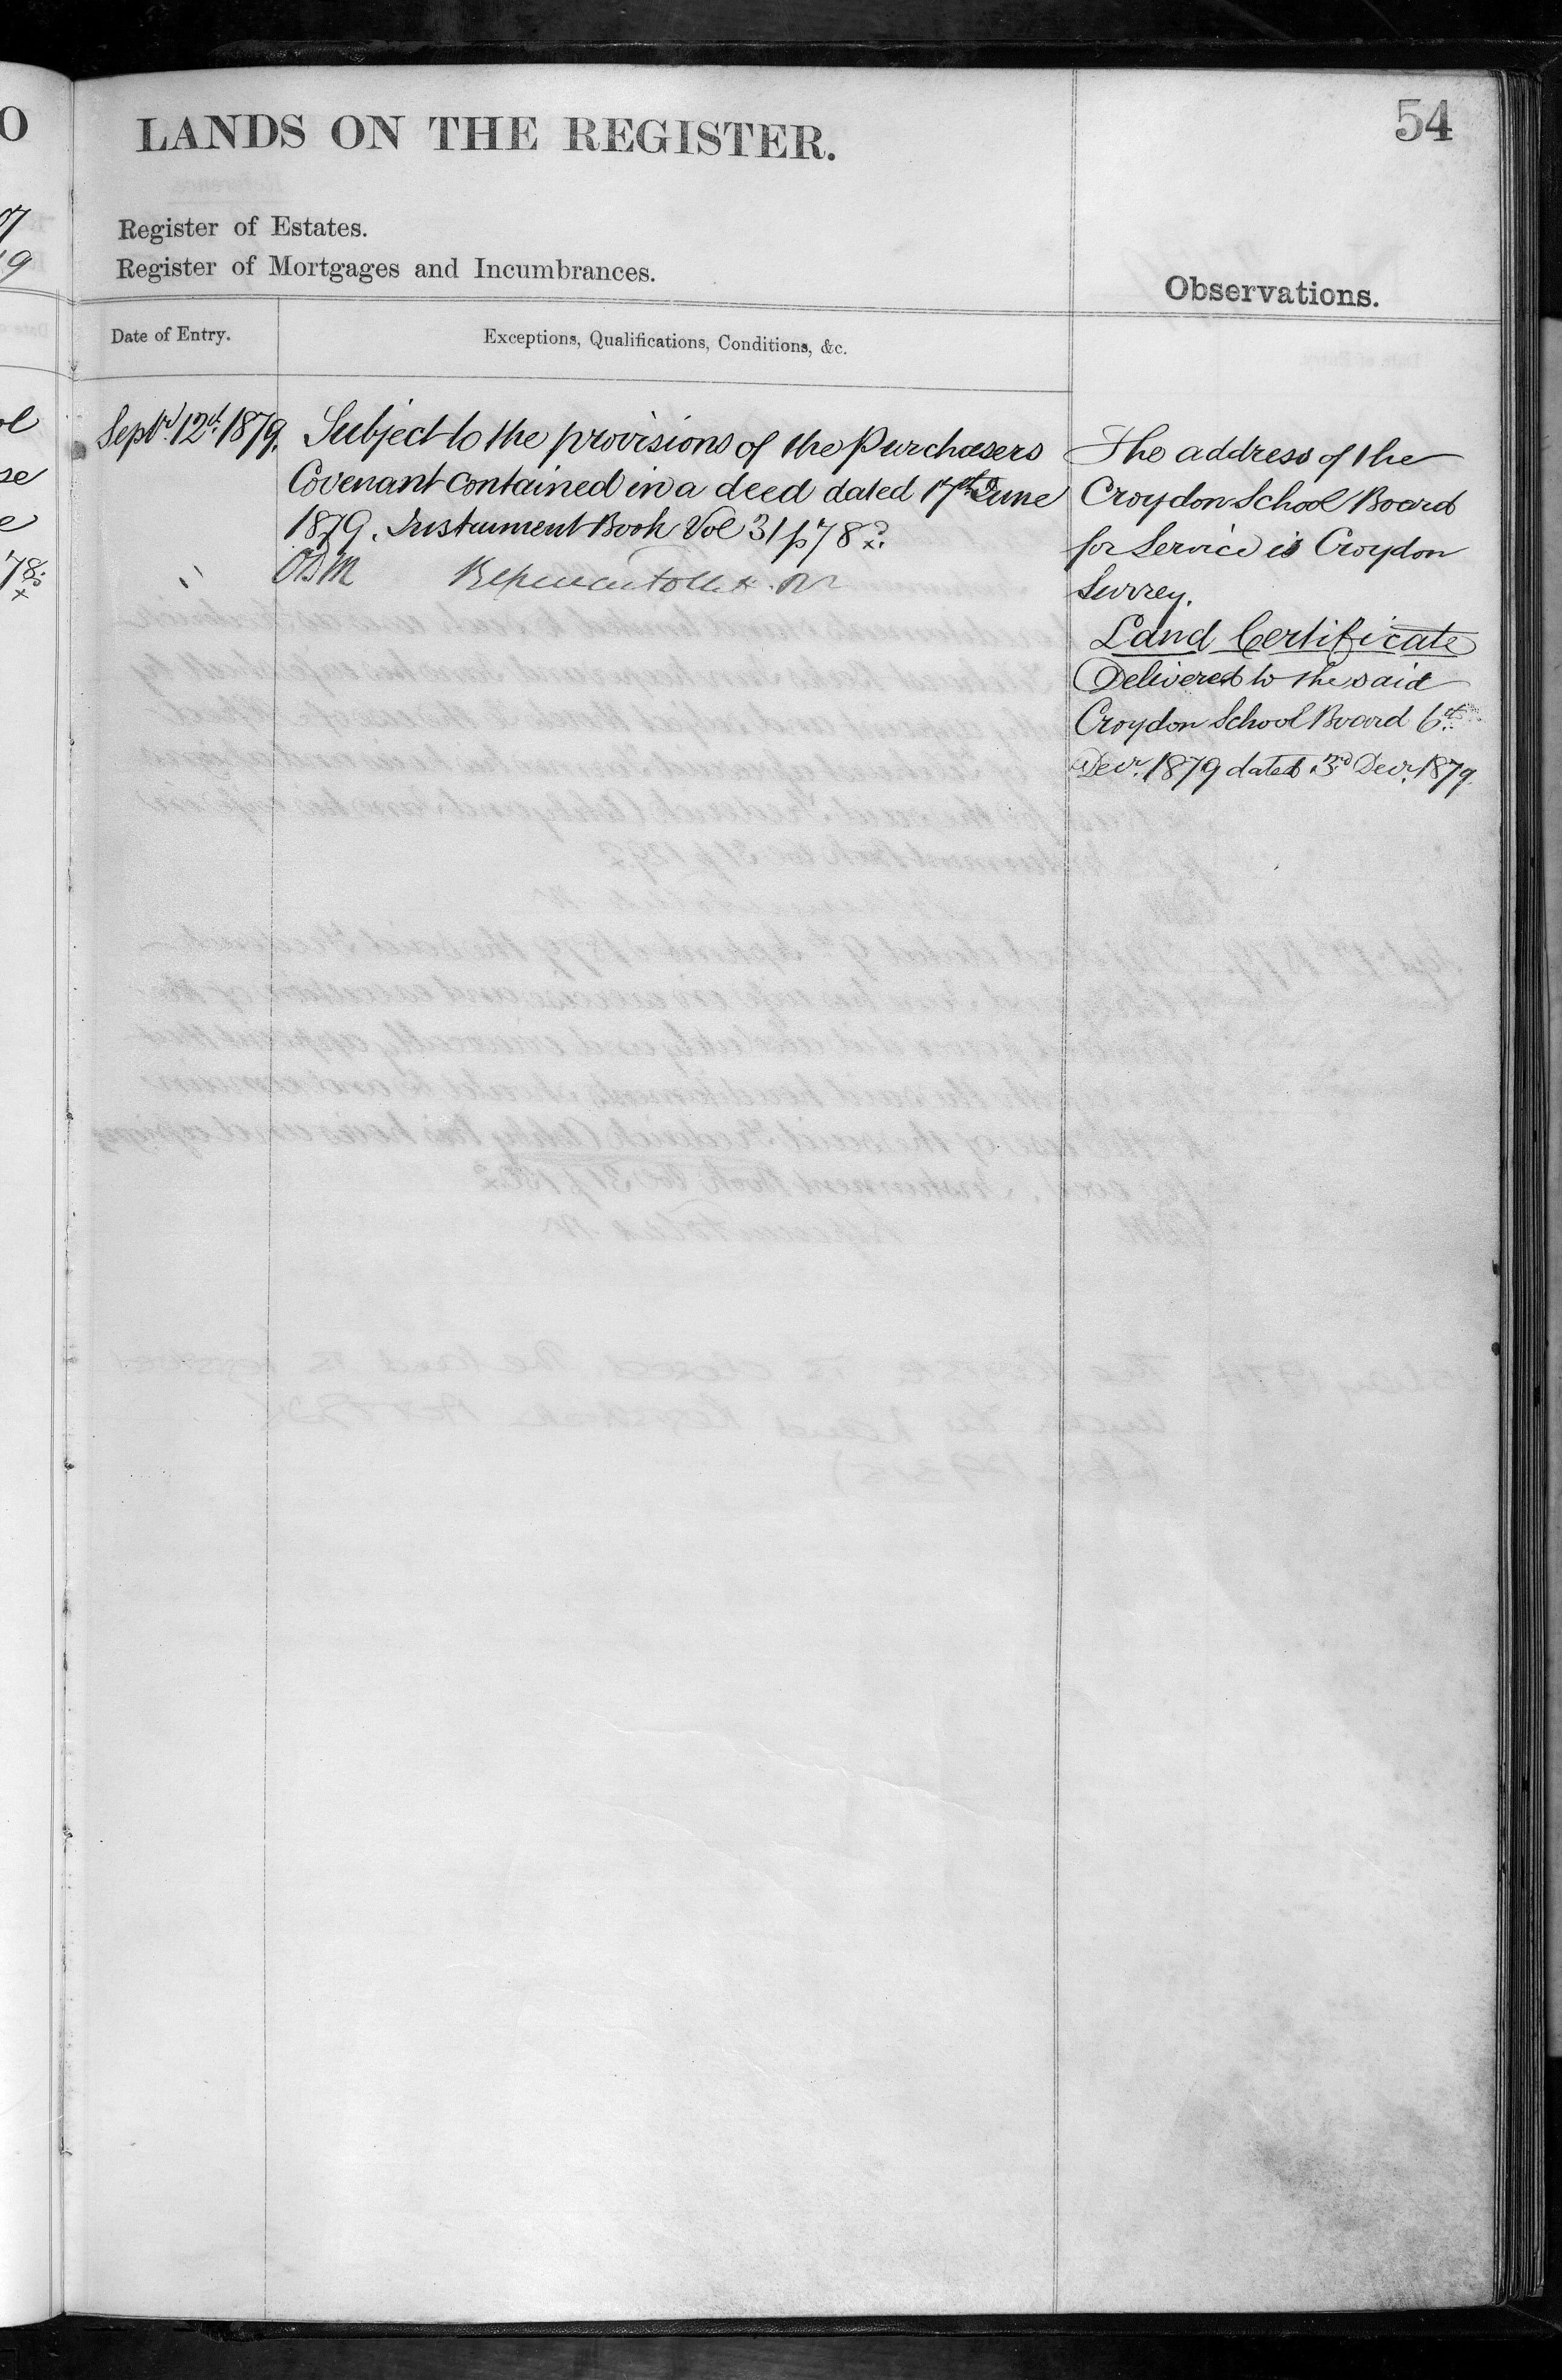 54
LANDS ON THE REGISTER.
Register of Estates.
Register of Mortgages and Incumbrances.
Observations.
Date of Entry.
Exceptions, Qualifications, Conditions, &c.
Septr. 12th. 1879.
Subject to the provisions of the Purchasers
Covenant contained in a deed dated 17th June
1879. Instrument Book Vol 31 p 78
The address of the
Croydon School Board
for Service is Croydon
Surrey.
Land Certificate
Delivered to the said
Croydon School Board 6th
Decr. 1879 dated 3rd Decr. 1879